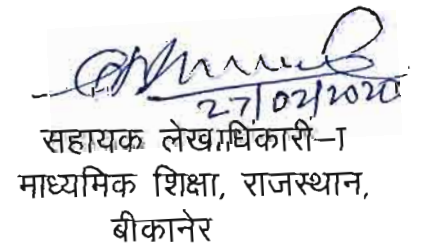 27/02/2020
सहायक लेखाधिकारी–I
माध्यमिक शिक्षा, राजस्थान,
बीकानेर